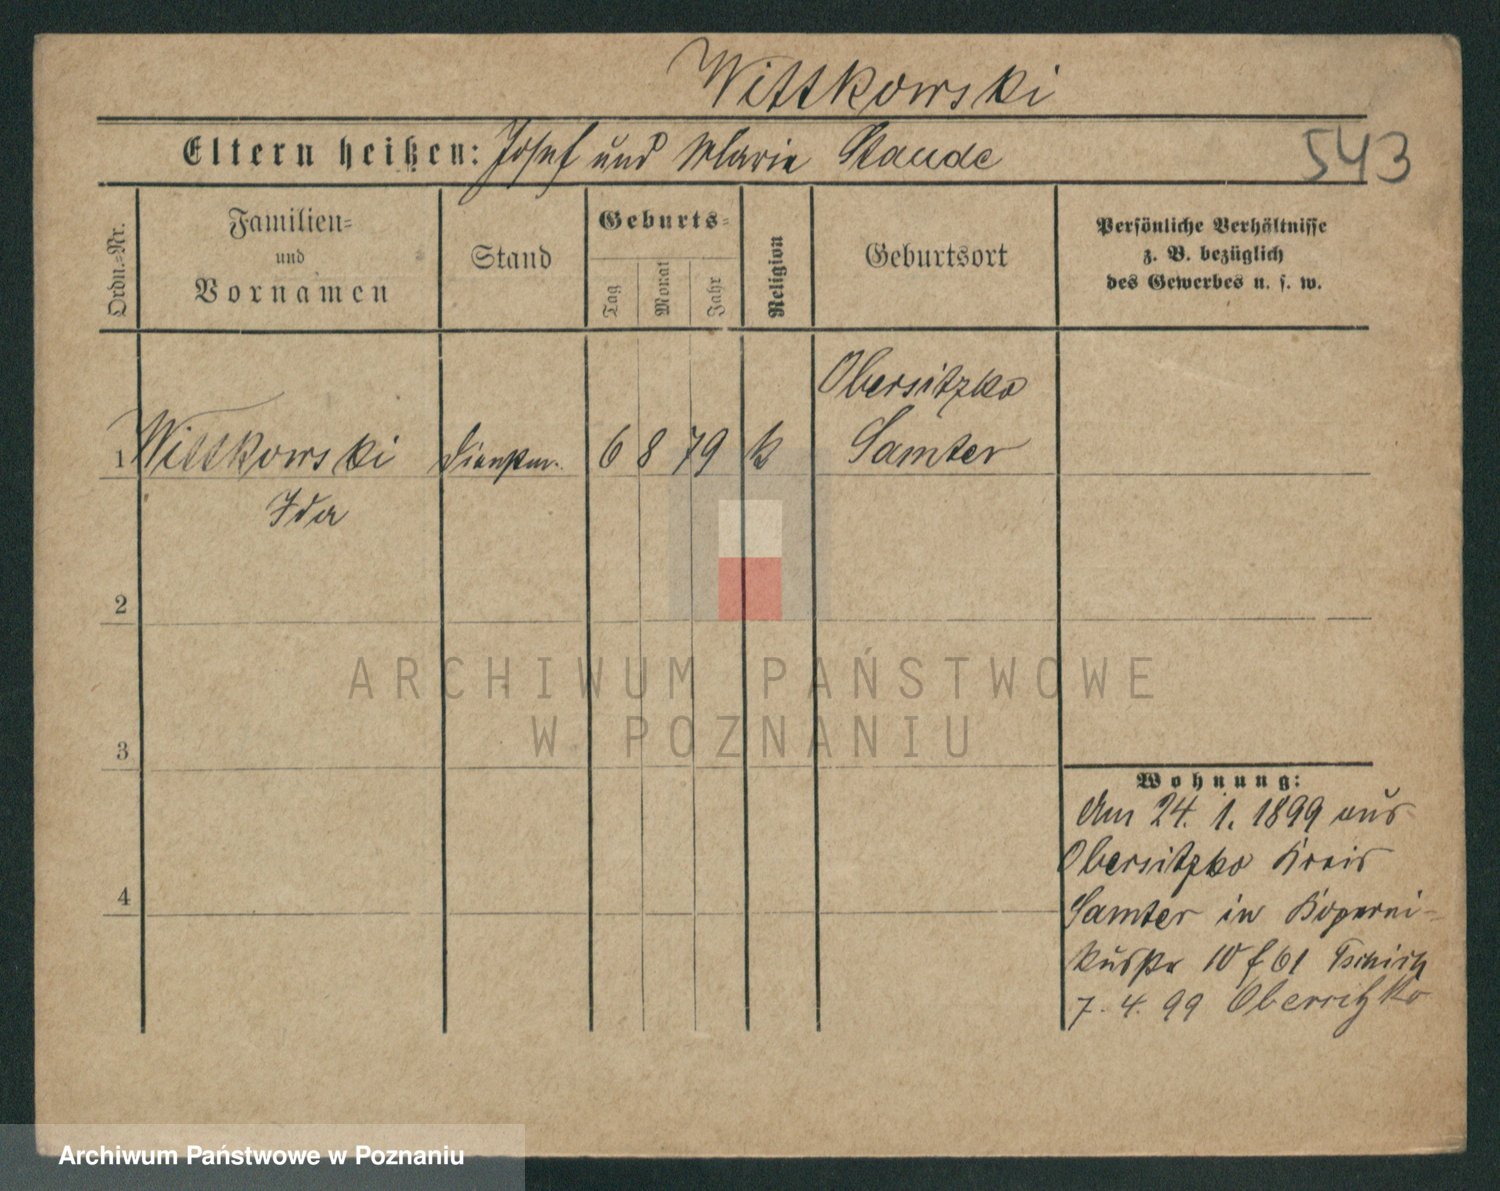 Wittkowski
Eltern heißen: Josef und Marie Staude
543
Ordn.-Nr.
Familien-
und
Vornamen
Stand
Geburts-
Tag
Monat
Jahr
Religion
Geburtsort
Persönliche Verhältnisse
z. B. bezüglich
des Gewerbes u. s. w.
Obersitzko
1 Wittkowski 6 8 79 k Samter
Ida
2
ARCHIWUM PAŃSTWOWE
W POZNANIU
3
Wohnung:
Am 24. 1. 1899 aus
Obersitzko Kreis
4
Samter in Koperni-
kusstr 10 f 61
7. 4. 99 Obersitzko
Archiwum Państwowe w Poznaniu